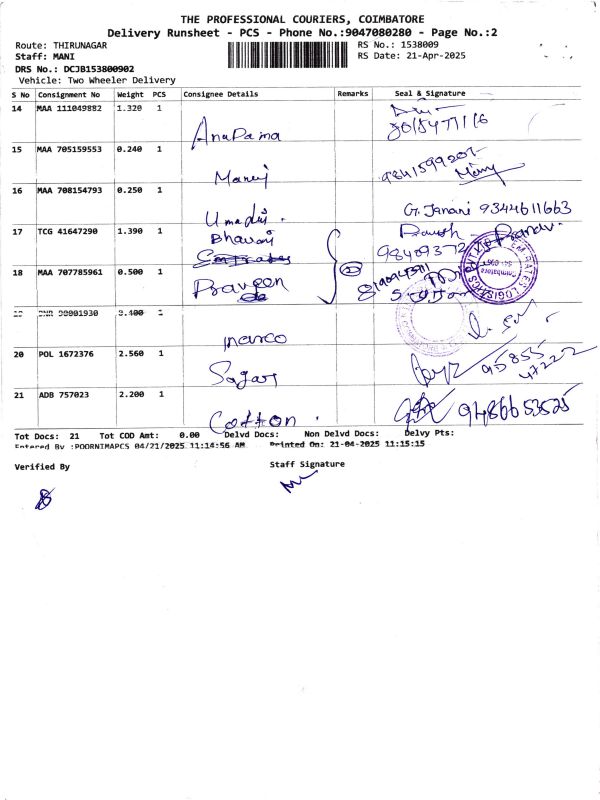 THE PROFESSIONAL COURIERS, COIMBATORE
Delivery Runsheet - PCS - Phone No.:9047080280 - Page No.:2
Route: THIRUNAGAR RS No.: 1538009
Staff: MANI RS Date: 21-Apr-2025
DRS No.: DCJB153800902
Vehicle: Two Wheeler Delivery
S No Consignment No Weight PCS Consignee Details Remarks Seal & Signature
14 MAA 111049882 1.320 1
Anupama
15 MAA 705159553 0.240 1
Manuj
16 MAA 708154793 0.250 1
Umadui. G. Janani 9344611663
17 TCG 41647290 1.390 1
Bhavani
Emirates
18 MAA 707785961 0.500 1
Praveen
EMIRATES LOGISTICS
Coimbatore
1
marco
20 POL 1672376 2.560 1
Sagar 95855 47222
21 ADB 757023 2.200 1
Cotton. 9486653525
Tot Docs: 21 Tot COD Amt: 0.00 Delvd Docs: Non Delvd Docs: Delvy Pts:
Entered By :POORNIMAPCS 04/21/2025 11:14:56 AM Printed On: 21-04-2025 11:15:15
Verified By Staff Signature